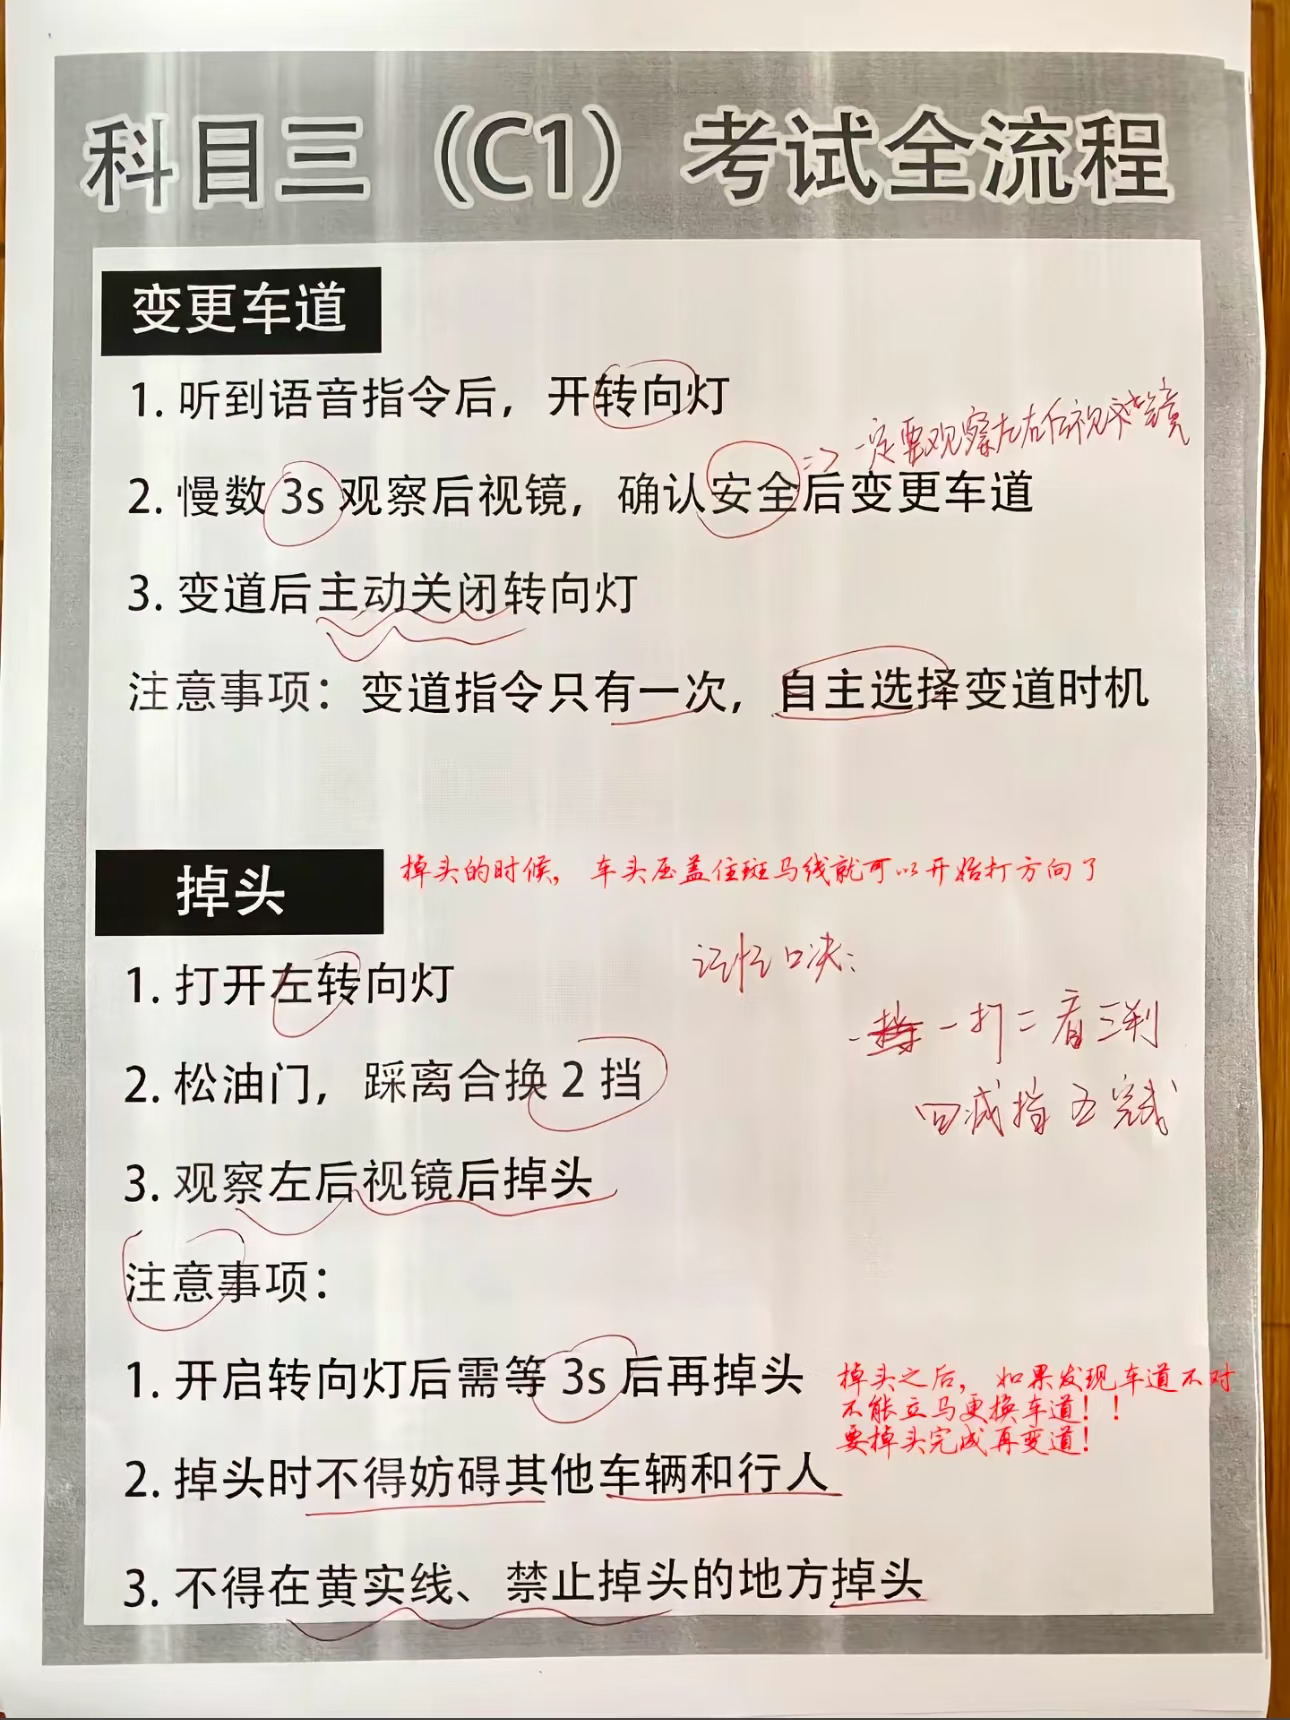 科目三（C1）考试全流程
变更车道
1. 听到语音指令后，开转向灯
=> 一定要观察左右后视镜
2. 慢数 3s 观察后视镜，确认安全后变更车道
3. 变道后主动关闭转向灯
注意事项：变道指令只有一次，自主选择变道时机
掉头
掉头的时候，车头压盖住斑马线就可以开始打方向了
1. 打开左转向灯
记忆口决：
一打二看三刹
2. 松油门，踩离合换 2 挡
四减挡五完成
3. 观察左后视镜后掉头
注意事项：
1. 开启转向灯后需等 3s 后再掉头
掉头之后，如果发现车道不对
不能立马更换车道！！
要掉头完成再变道！
2. 掉头时不得妨碍其他车辆和行人
3. 不得在黄实线、禁止掉头的地方掉头